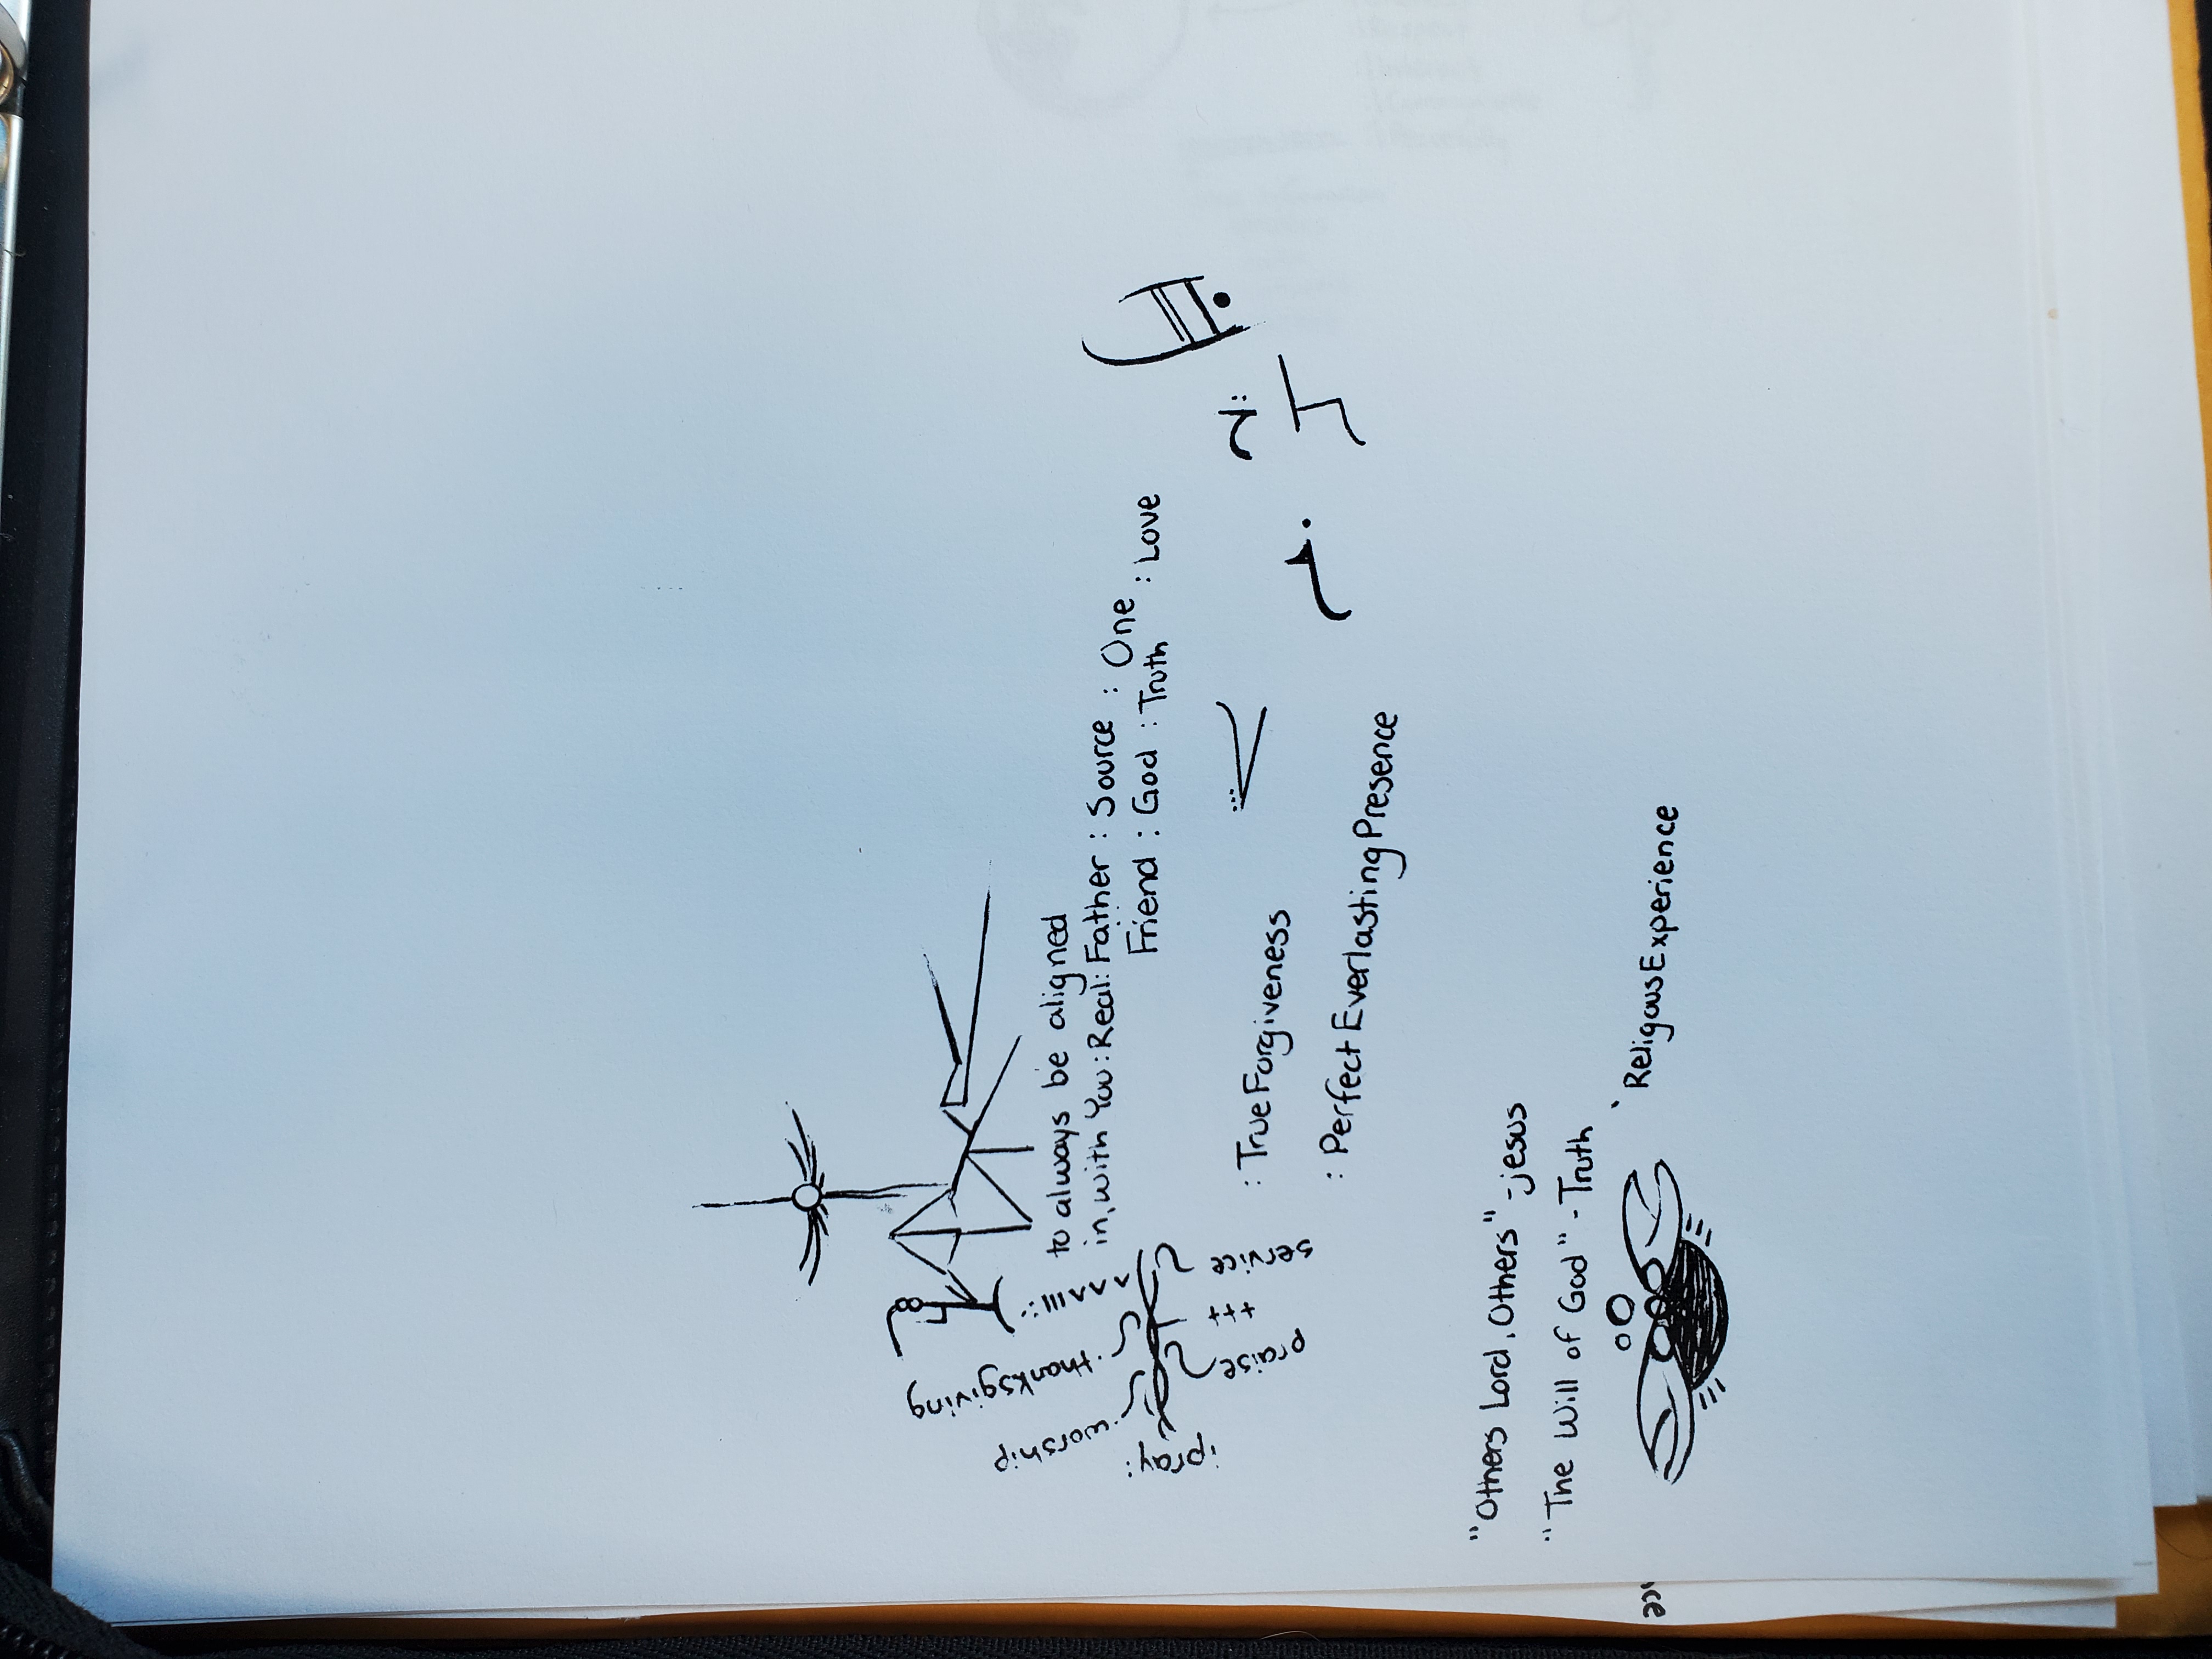 ipray:
worship
thanksgiving
praise
+++
service
to always be aligned
in, with You: Real: Father : Source : One : Love
Friend : God : Truth
: TrueForgiveness
: Perfect EverlastingPresence
"Others Lord, Others" -jesus
"The Will of God" - Truth
ReligousExperience